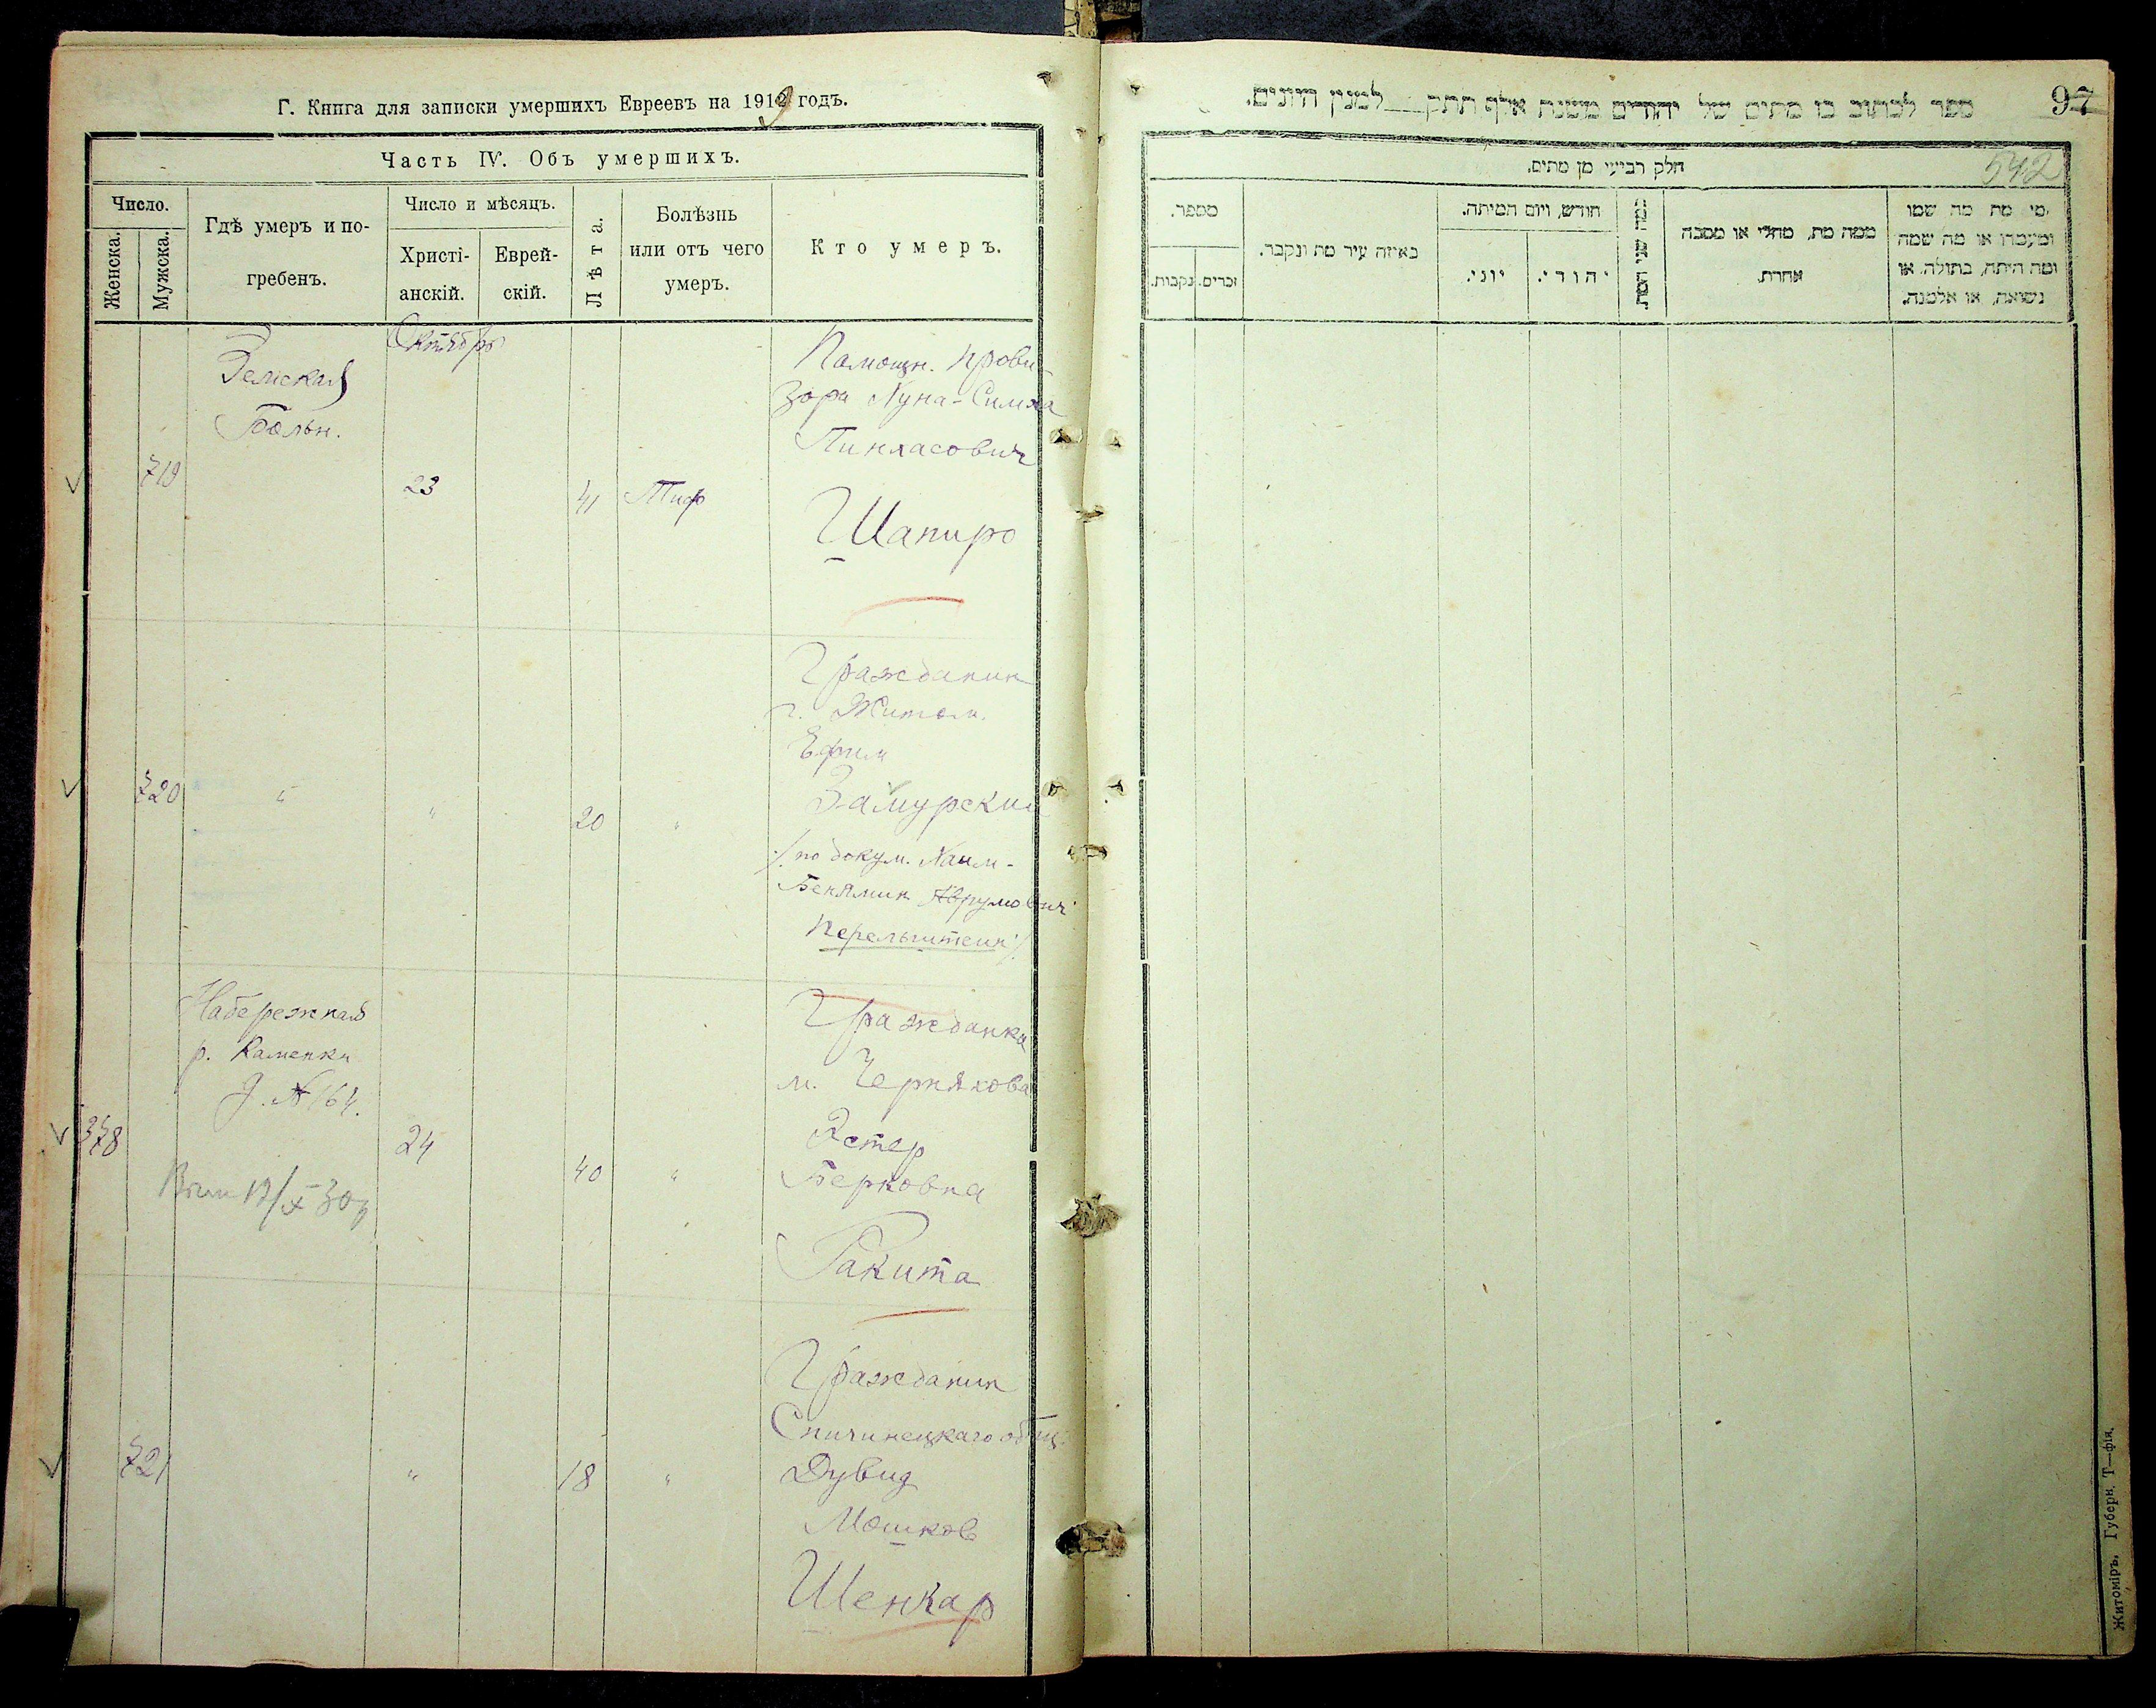 Г. Книга для записки умершихъ Евреевъ на 1919 годъ.
Часть IV. Объ умершихъ.
Число.
Женска.
Мужска.
Гдѣ умеръ и по-
гребенъ.
Число и мѣсяцъ.
Христі-
анскій.
Еврей-
скій.
Лѣта.
Болѣзнь
или отъ чего
умеръ.
Кто умеръ.
Октябрь
719
Земская
Больн.
23
41
Тиф
Помощн. прови-
зора Нуна-Симха
Пинхасович
Шапиро
720
"
"
20
"
Гражданин
г. Житом.
Ефим
Замурский
/по докум. Хаим-
Бенямин Аврумович
Перельштейн/
378
Набережная
р. Каменки
д. № 164.
24
40
"
Гражданка
м. Чернякова
Эстер
Берковна
Ракита
721
"
18
"
Гражданин
Спичинецкаго общ.
Дувид
Мошков
Шенкар
ספר לכתוב בו מתים של יהודים משנת אלף תתק למנין היונים.
97
542
חלק רביעי מן מתים.
מספר.
זכרים.
נקבות.
באיזה עיר מת ונקבר.
חודש, ויום המיתה.
יוני.
יהודי.
כמה שני המת.
ממה מת, מחלי או מסבה
אחרת.
מי מת מה שמו
ומעמדו או מה שמה
ומה היתה, בתולה, או
נשואה, או אלמנה.
Житоміръ, Губерн. Т—фія.